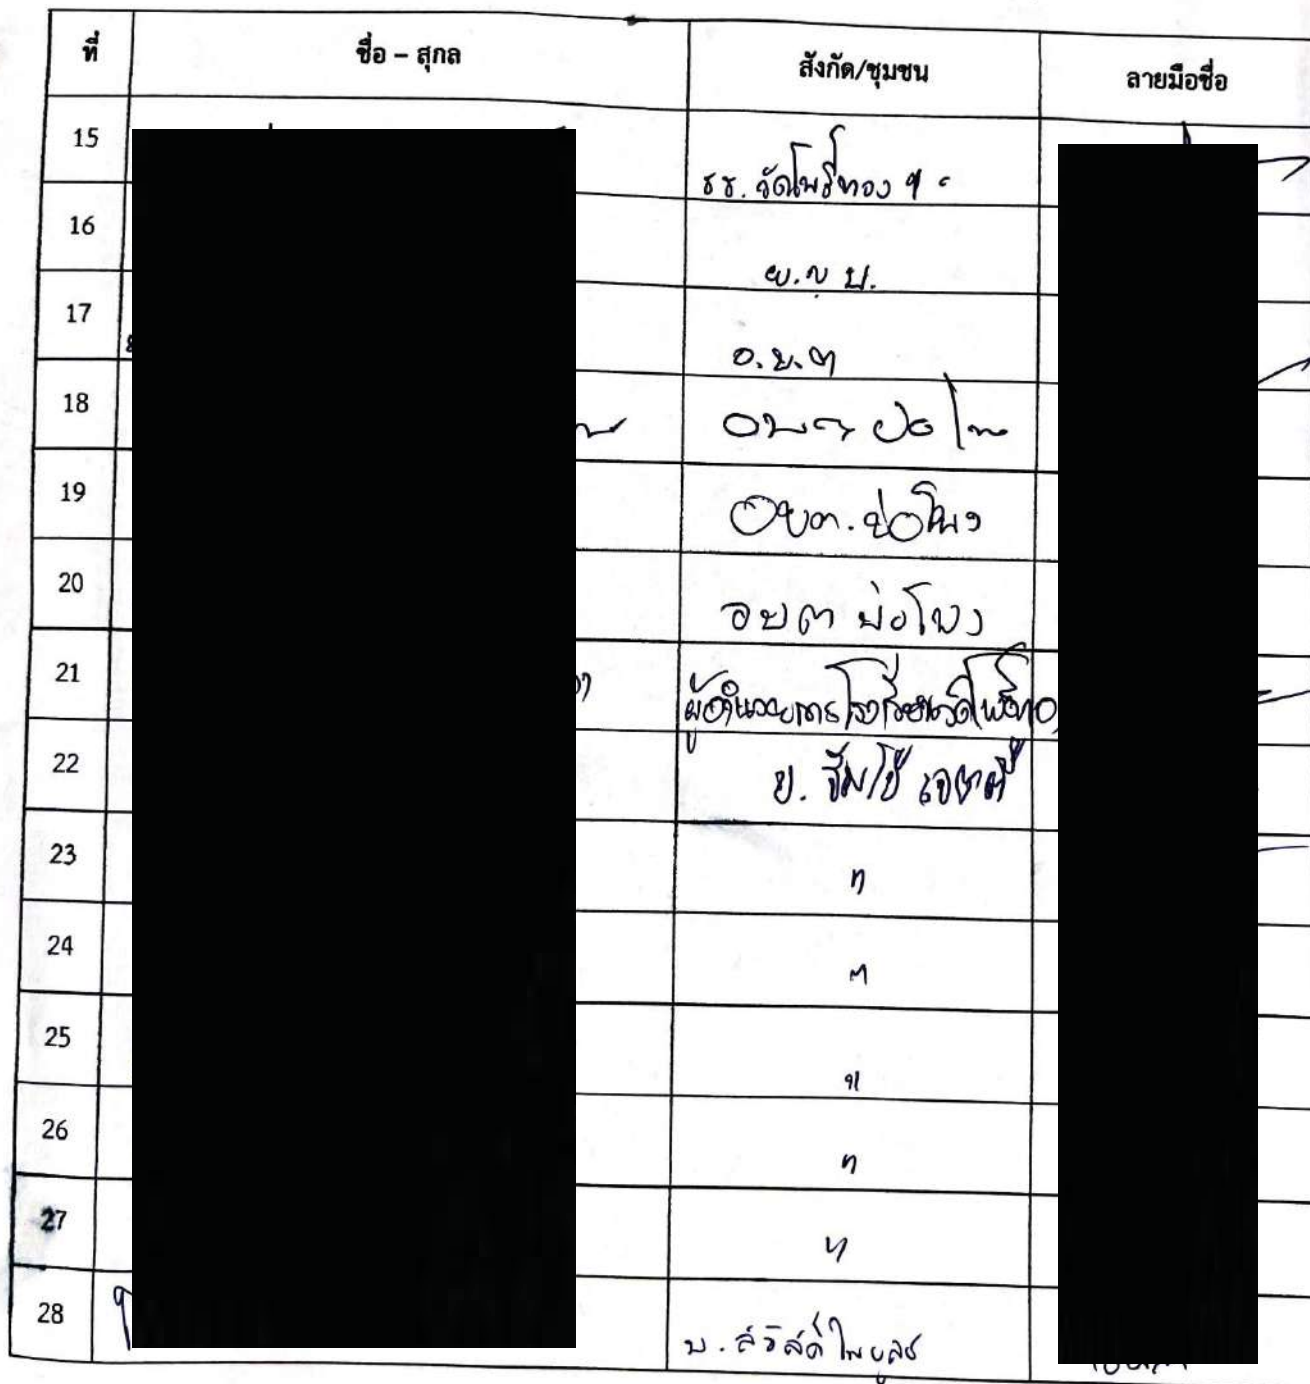 ที่ ชื่อ – สุกล สังกัด/ชุมชน ลายมือชื่อ
15 รร. วัดโพธิ์ทอง ฯ
16 ผ.ญ บ.
17 อ.บ.ต
18 อบต บ่อโพง
19 อบต. บ่อโพง
20 อบต บ่อโพง
21 ผู้อำนวยการโรงเรียนวัดโพธิ์ทอง
22 บ.
23 "
24 "
25 "
26 "
27 "
28 บ.